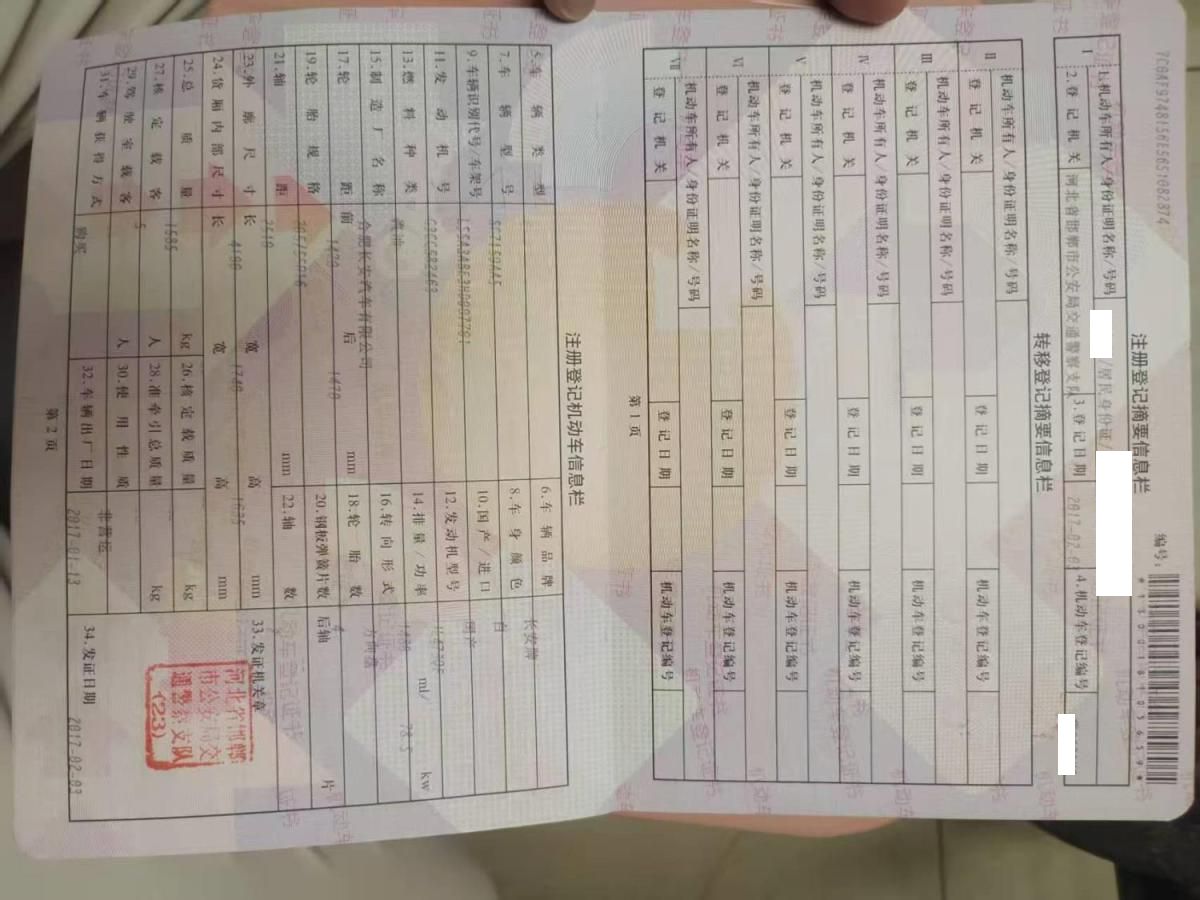 7C0AF9748156E5651082874
注册登记摘要信息栏
编号:
*130018105659*
I
1.机动车所有人/身份证明名称/号码
/居民身份证/
2.登记机关
河北省邯郸市公安局交通警察支队
3.登记日期
2017-02-03
4.机动车登记编号
转移登记摘要信息栏
II
机动车所有人/身份证明名称/号码
登记机关
登记日期
机动车登记编号
III
机动车所有人/身份证明名称/号码
登记机关
登记日期
机动车登记编号
IV
机动车所有人/身份证明名称/号码
登记机关
登记日期
机动车登记编号
V
机动车所有人/身份证明名称/号码
登记机关
登记日期
机动车登记编号
VI
机动车所有人/身份证明名称/号码
登记机关
登记日期
机动车登记编号
VII
机动车所有人/身份证明名称/号码
登记机关
登记日期
机动车登记编号
第1页
注册登记机动车信息栏
5.车辆类型
6.车辆品牌 长安牌
7.车辆型号 SC7159AA5
8.车身颜色 白
9.车辆识别代号/车架号
10.国产/进口 国产
11.发动机号
12.发动机型号
13.燃料种类 汽油
14.排量/功率 ml/ 78.5 kw
15.制造厂名称 合肥长安汽车有限公司
16.转向形式 方向盘
17.轮距 前 1470 后 1470 mm
18.轮胎数 4
19.轮胎规格 205/55R16
20.钢板弹簧片数 后轴 片
21.轴距 2610 mm
22.轴数
23.外廓尺寸 长 宽 1740 高 1635 mm
33.发证机关章
24.货厢内部尺寸 长 宽 高 mm
河北省邯郸市公安局交通警察支队
(23)
25.总质量 1585 kg
26.核定载质量 kg
27.核定载客 5 人
28.准牵引总质量 kg
29.驾驶室载客 人
30.使用性质 非营运
31.车辆获得方式 购买
32.车辆出厂日期 2017-01-13
34.发证日期 2017-02-03
第2页